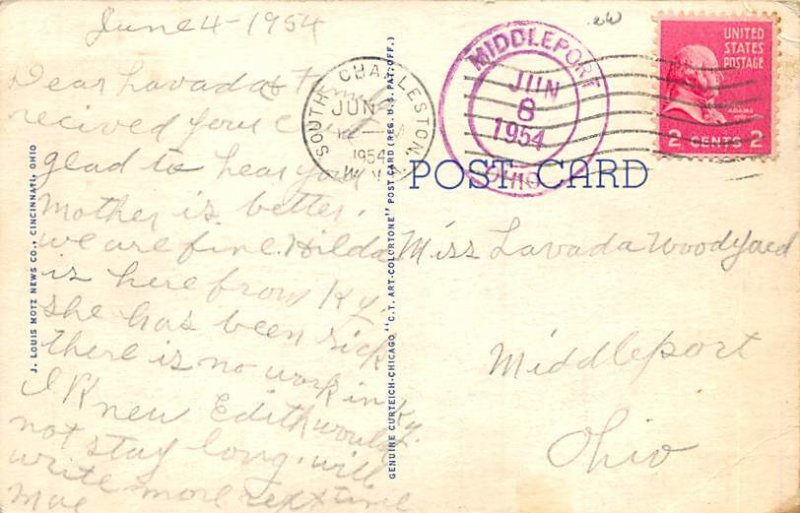 June 4 - 1954
Dear Lavada &
recived your
glad to hear your
Mother is better.
we are fine. Hilda
is here from Ky.
she has been sick
there is no work in Ky.
I Knew Edith would
not stay long. will
write more next time
Mae
J. LOUIS MOTZ NEWS CO., CINCINNATI, OHIO
GENUINE CURTEICH-CHICAGO "C.T. ART-COLORTONE" POST CARD (REG. U.S. PAT. OFF.)
SOUTH CHARLESTON
JUN
1954
W.VA.
MIDDLEPORT
JUN
8
1954
OHIO
UNITED
STATES
POSTAGE
ADAMS
2 CENTS 2
POST CARD
Miss Lavada Woodyard
Middleport
Ohio